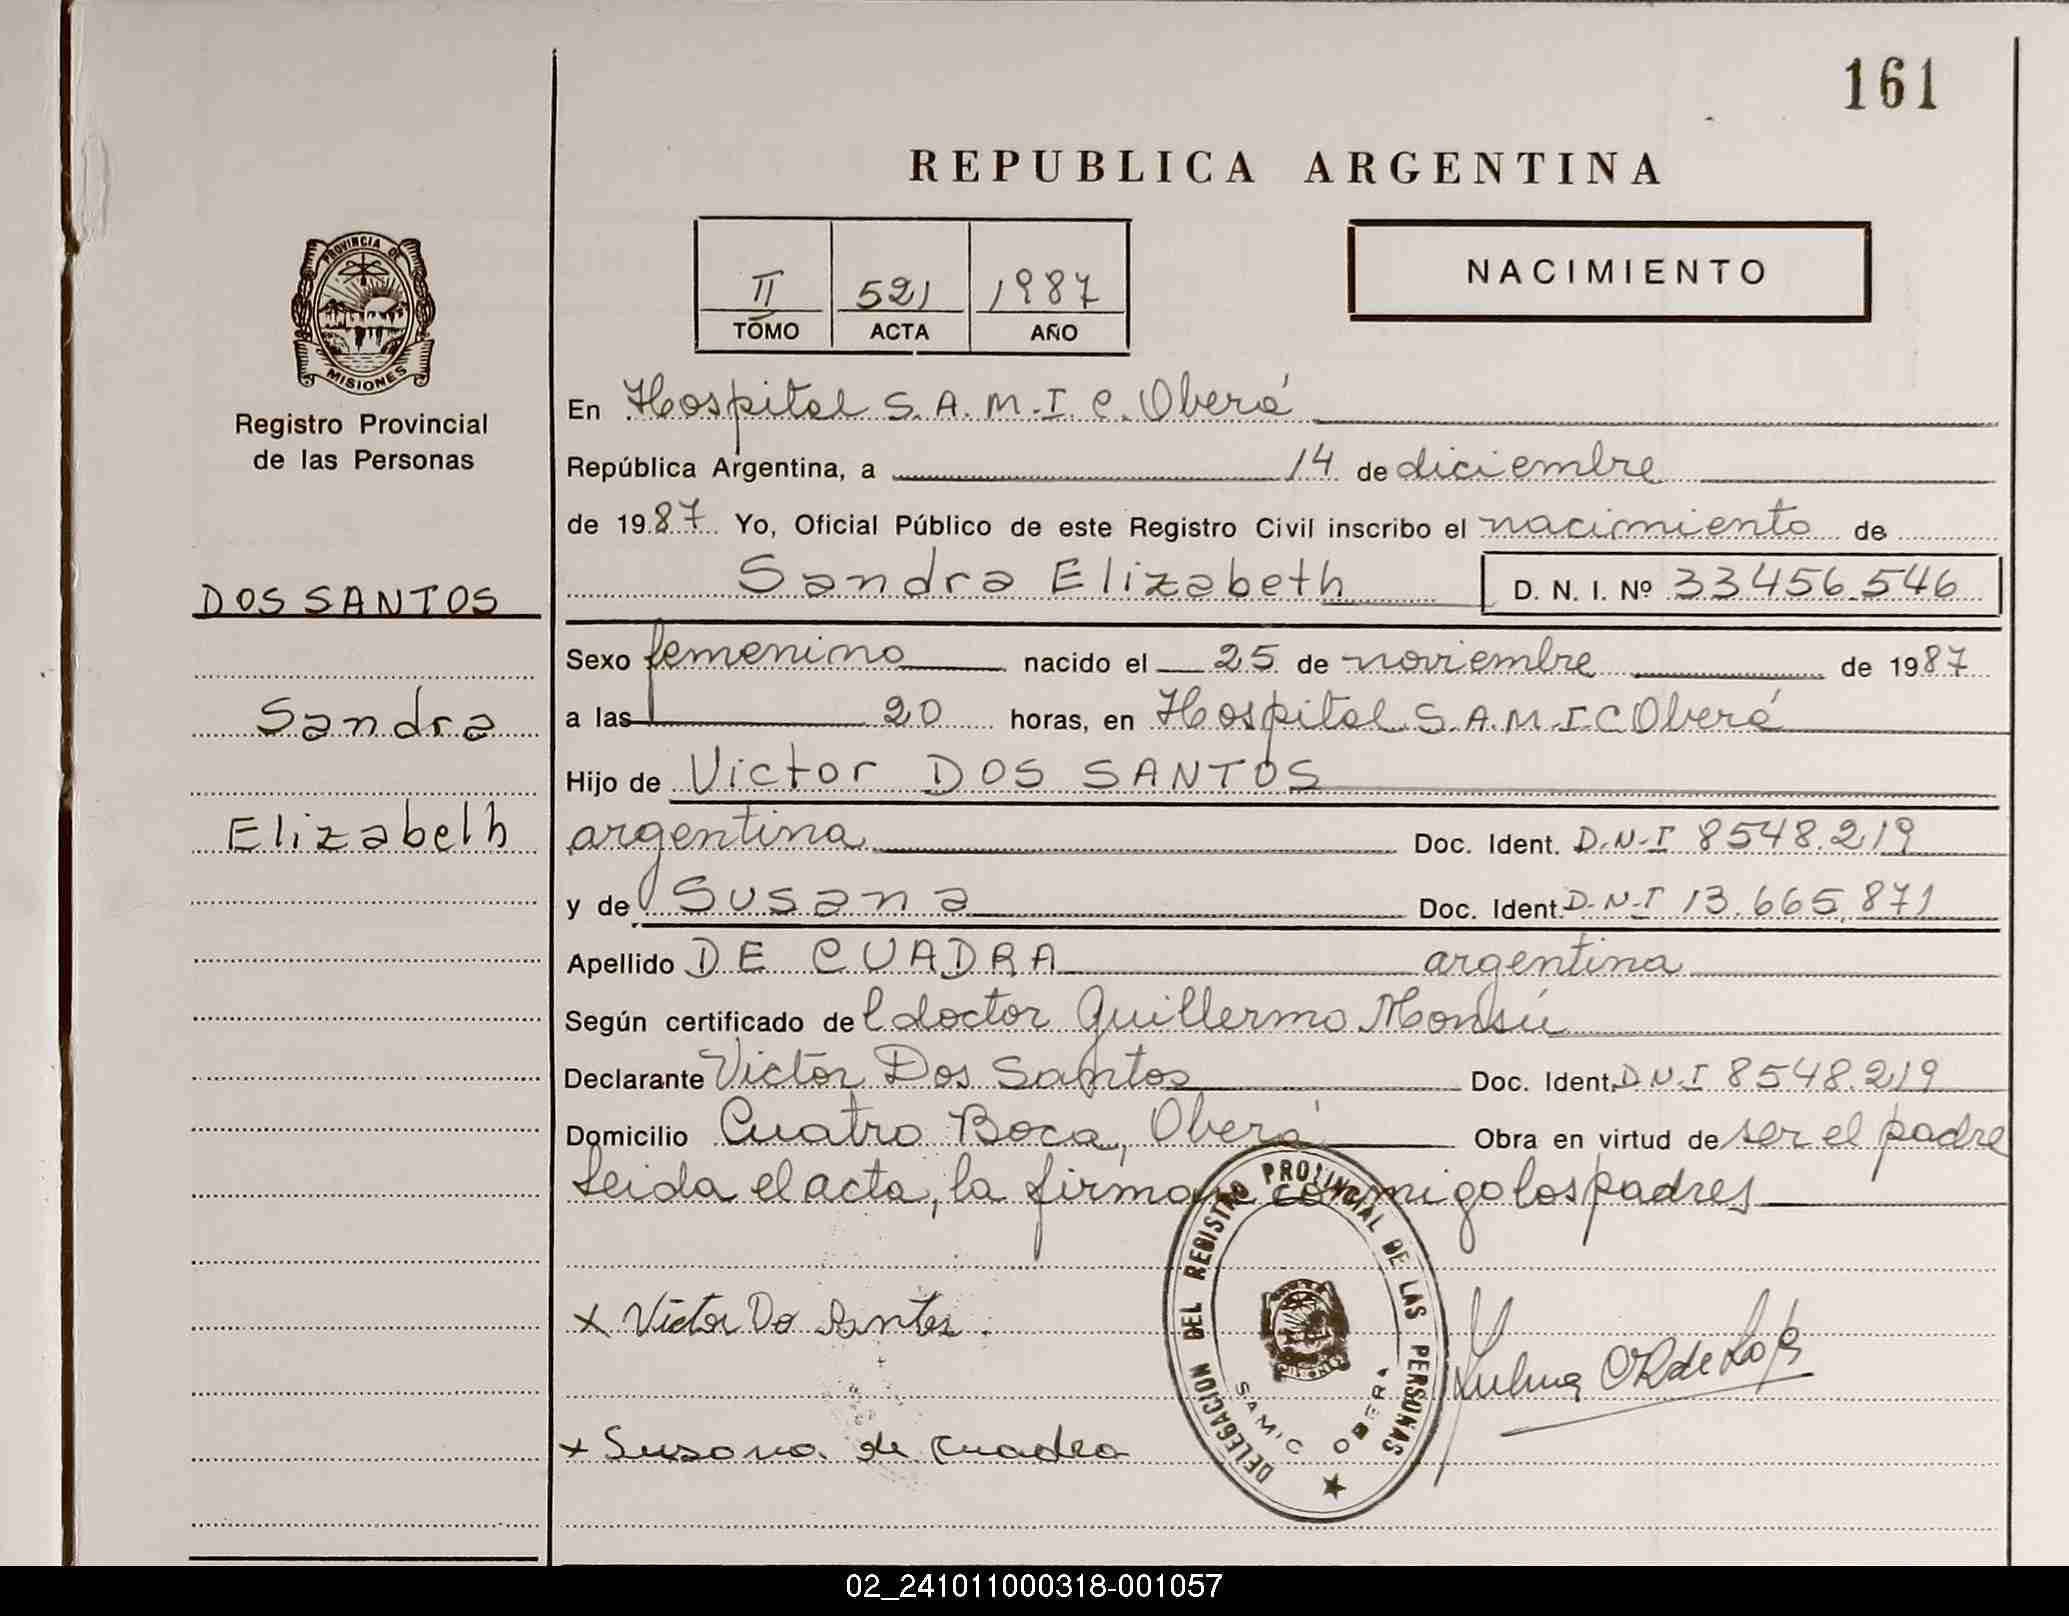 161
REPUBLICA ARGENTINA
II 521 1987
TOMO ACTA AÑO
NACIMIENTO
PROVINCIA DE
MISIONES
Registro Provincial
de las Personas
DOS SANTOS
Sandra
Elizabeth
En Hospital S.A.M.I.C. Oberá
República Argentina, a 14 de diciembre
de 1987 Yo, Oficial Público de este Registro Civil inscribo el nacimiento de
Sandra Elizabeth D. N. I. Nº 33456.546
Sexo femenino nacido el 25 de noviembre de 1987
a las 20 horas, en Hospital S.A.M.I.C Oberá
Hijo de Victor DOS SANTOS
argentina Doc. Ident. D.N.I 8548.219
y de Susana Doc. Ident. D.N.I 13.665.871
Apellido DE CUADRA argentina
Según certificado del doctor Guillermo Monsú
Declarante Victor Dos Santos Doc. Ident. D.N.I 8548.219
Domicilio Cuatro Boca, Oberá Obra en virtud de ser el padre
Leida el acta, la firman conmigo los padres
x Victor Do Santos.
x Susana de Cuadra
DELEGACION DEL REGISTRO PROVINCIAL DE LAS PERSONAS
MISIONES
SAMIC OBERA
02_241011000318-001057